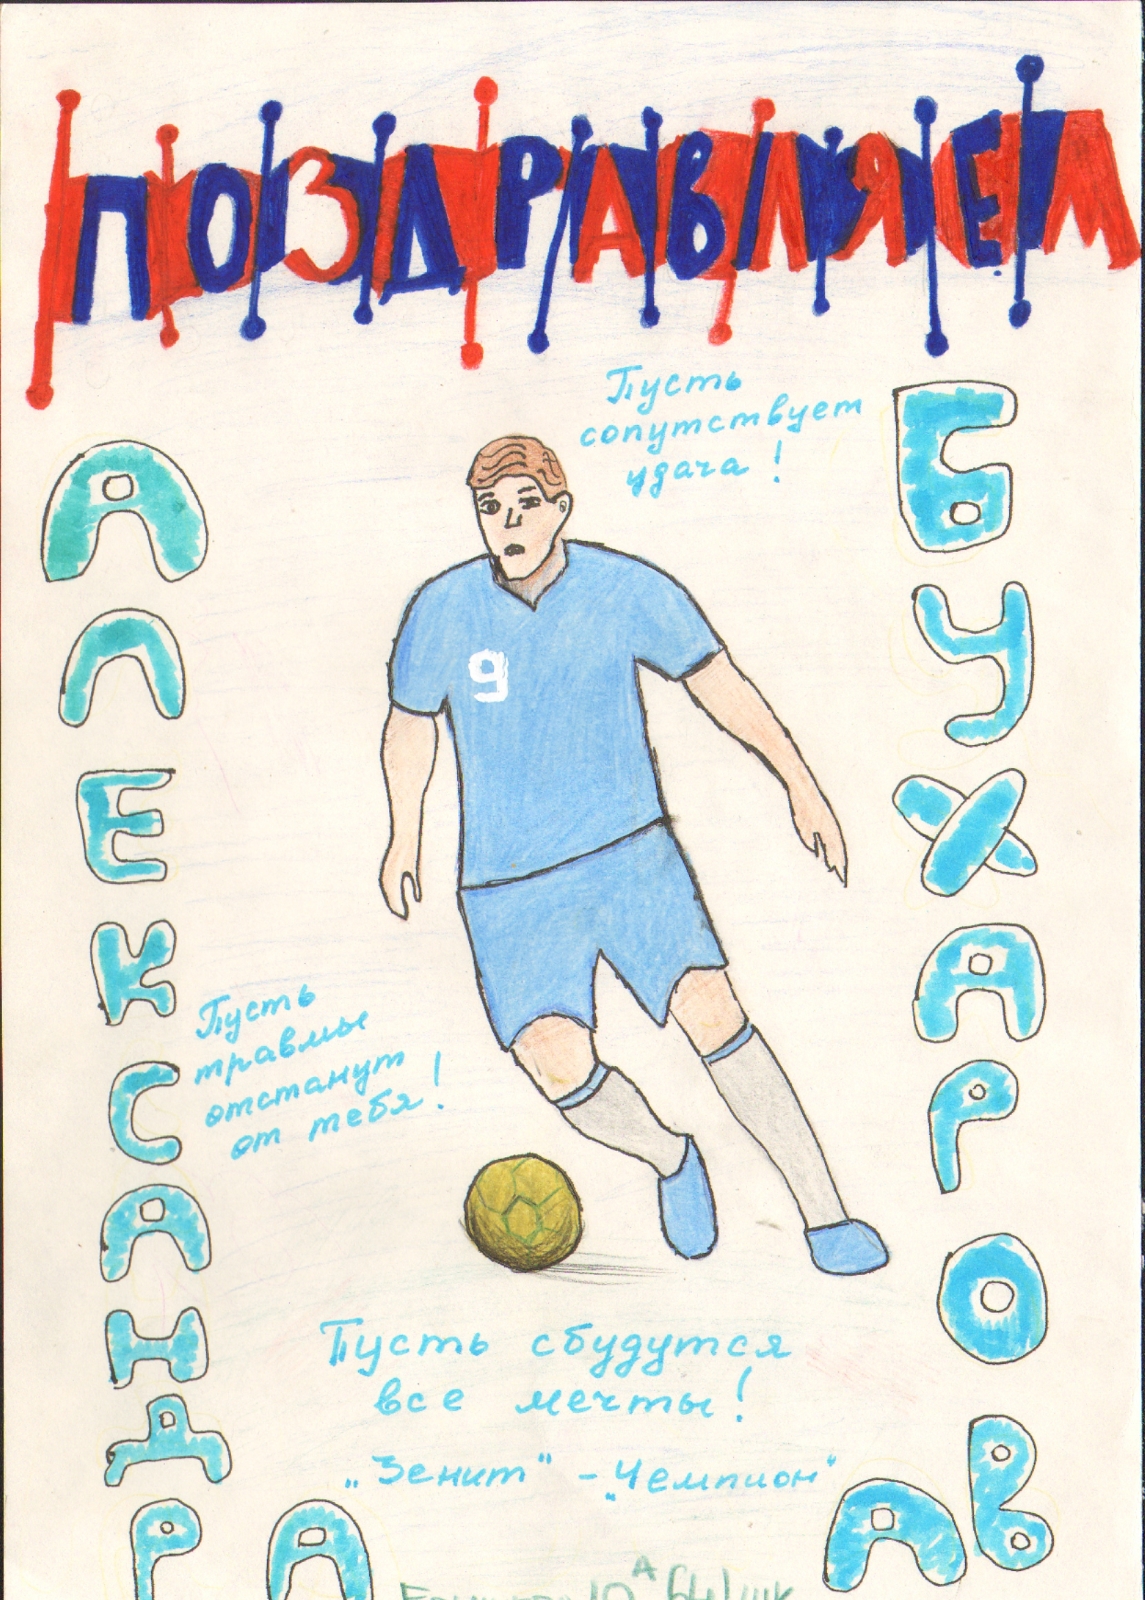 ПОЗДРАВЛЯЕМ
АЛЕКСАНДРА
БУХАРОВА
Пусть
сопутствует
удача!
9
Пусть
травмы
отстанут
от тебя!
Пусть сбудутся
все мечты!
„Зенит" - „Чемпион"